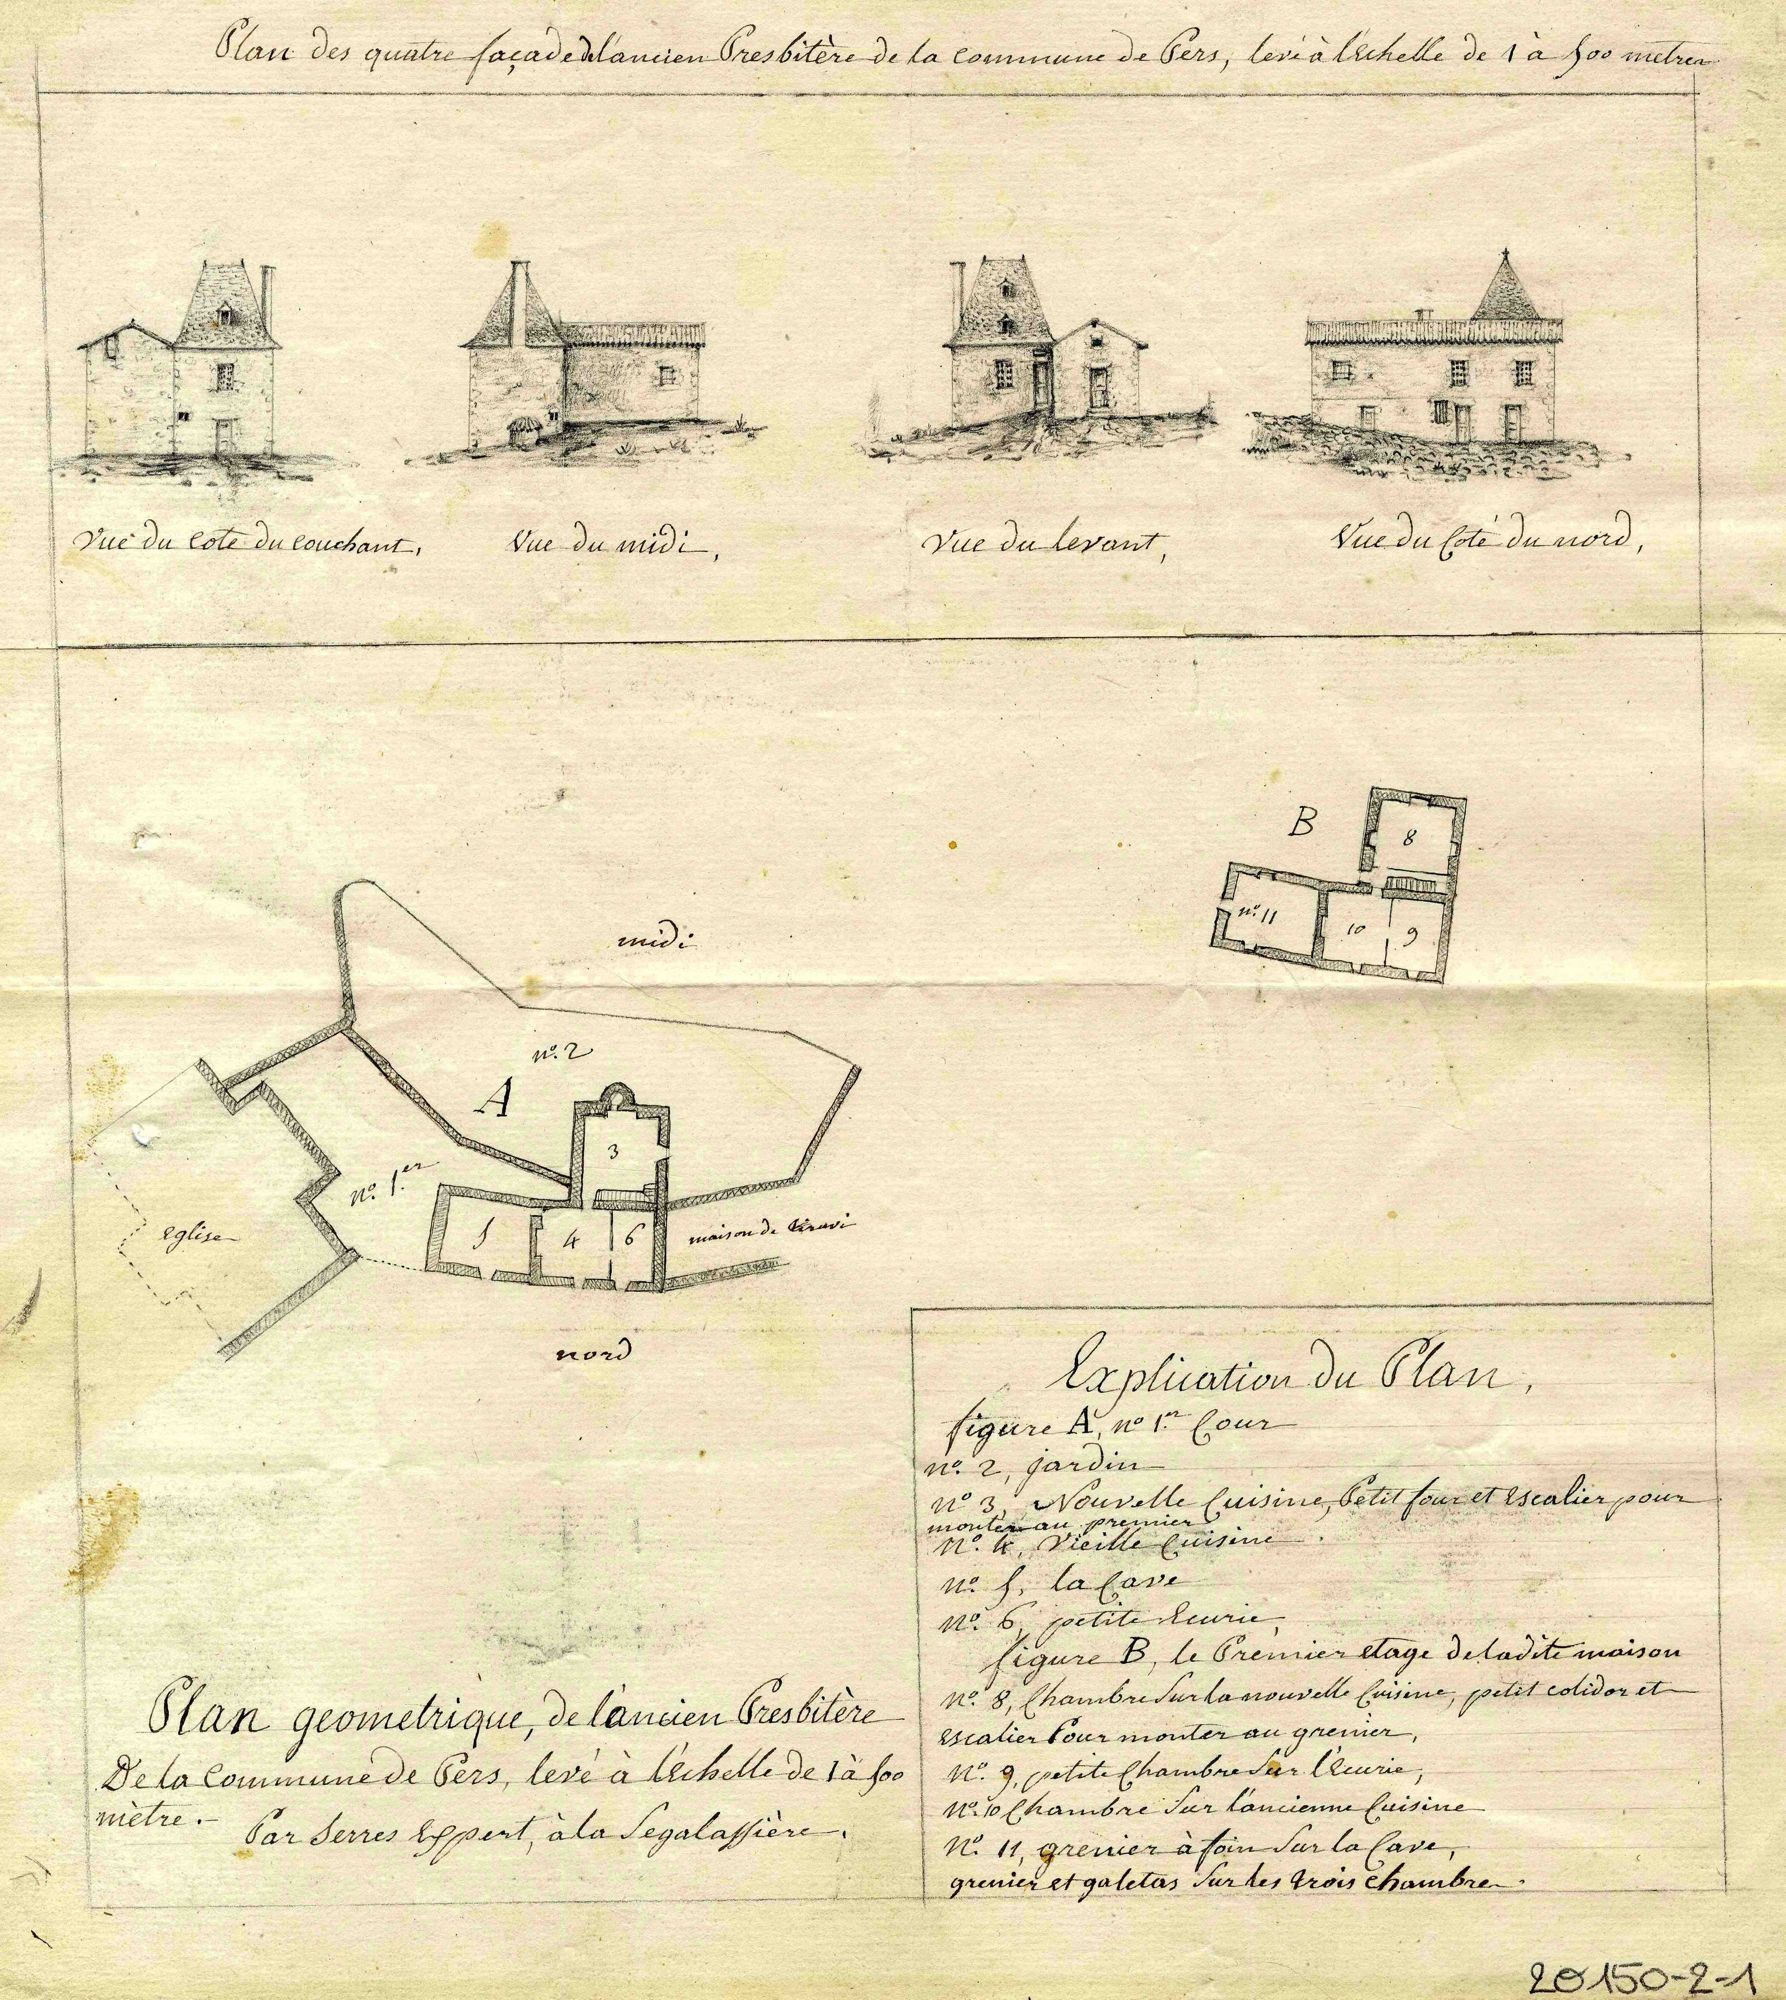 Plan des quatre façade de l'ancien Presbitère de la commune de Pers, levé à l'Echelle de 1 à 500 mètres
Vue du coté du couchant,
Vue du midi,
Vue du levant,
Vue du Coté du nord,
B
8
n.º 11
10
9
midi
n.º 2
A
3
n.º 1.er
5
4
6
Eglise
maison de
nord
Explication du Plan,
figure A, nº 1.er Cour
nº. 2, jardin
nº 3, Nouvelle Cuisine, Petit four et Escalier pour
monter au premier
nº. 4, Vieille Cuisine
nº. 5, la Cave
nº. 6, petite Ecurie,
figure B, le Premier etage de ladite maison
nº. 8, Chambre Sur la nouvelle Cuisine, petit colidor et
Escalier Pour monter au grenier,
nº. 9, petite Chambre Sur l'Ecurie,
nº. 10 Chambre Sur l'ancienne Cuisine
nº. 11, grenier à foin Sur la Cave,
grenier et galetas Sur les trois Chambre.
Plan geometrique, de l'ancien Presbitère
De la Commune de Pers, levé à l'Echelle de 1 à 500
mètre.
Par Serres Expert, à la Segalassière.
20150-2-1